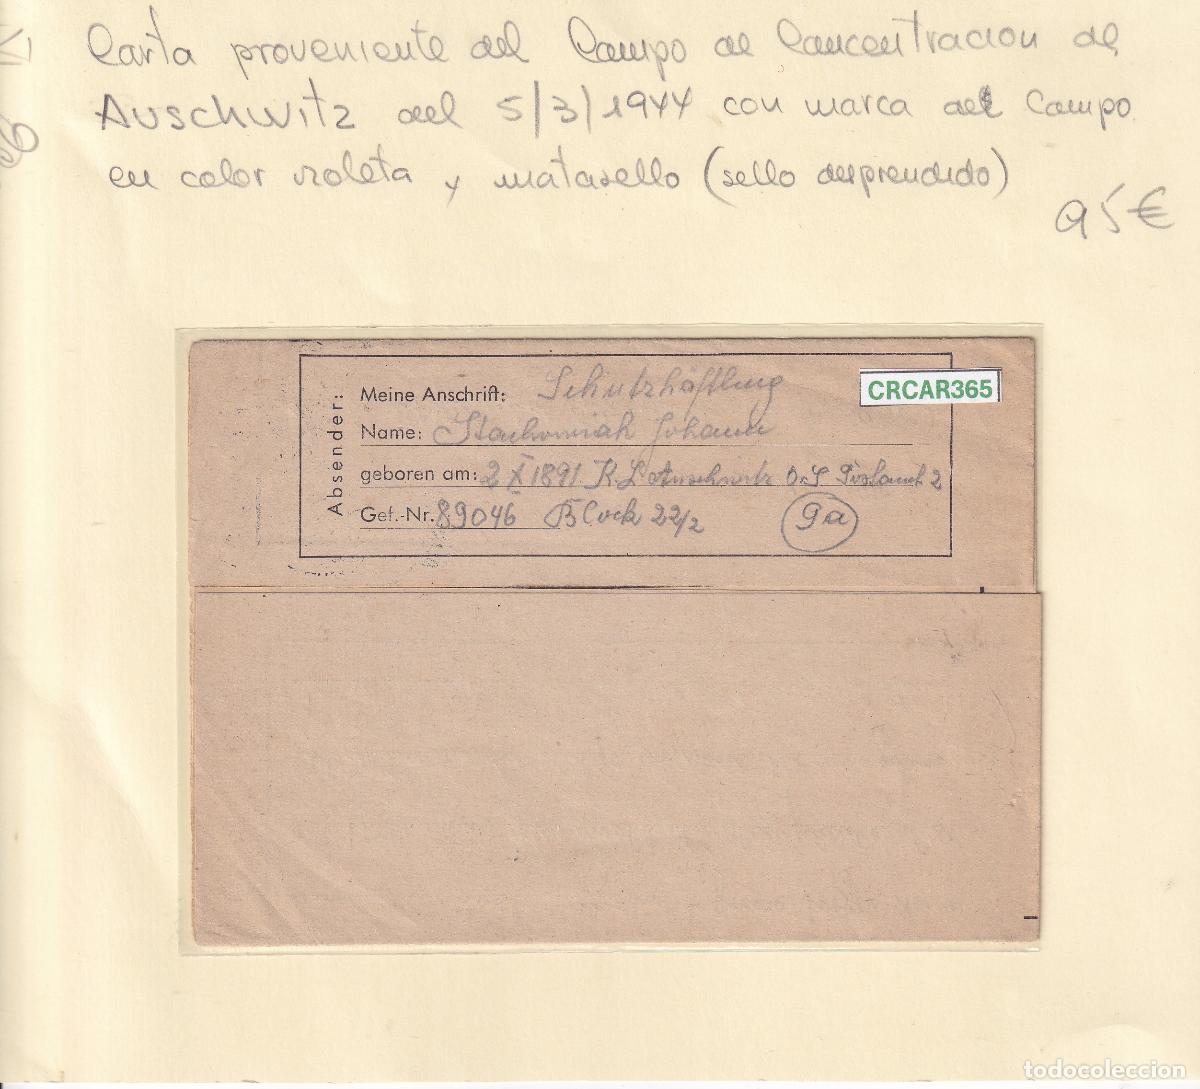 Carta proveniente del Campo de Concentración de
Auschwitz del 5/3/1944 con marca del Campo
en color violeta y matasello (sello desprendido)
95€
CRCAR365
Absender:
Meine Anschrift: Schutzhäftling
Name: Stachowiak Johann
geboren am: 2 X 1891 K L Auschwitz O.S Postamt 2
Gef.-Nr. 89046 Block 22/2 9a
todocoleccion